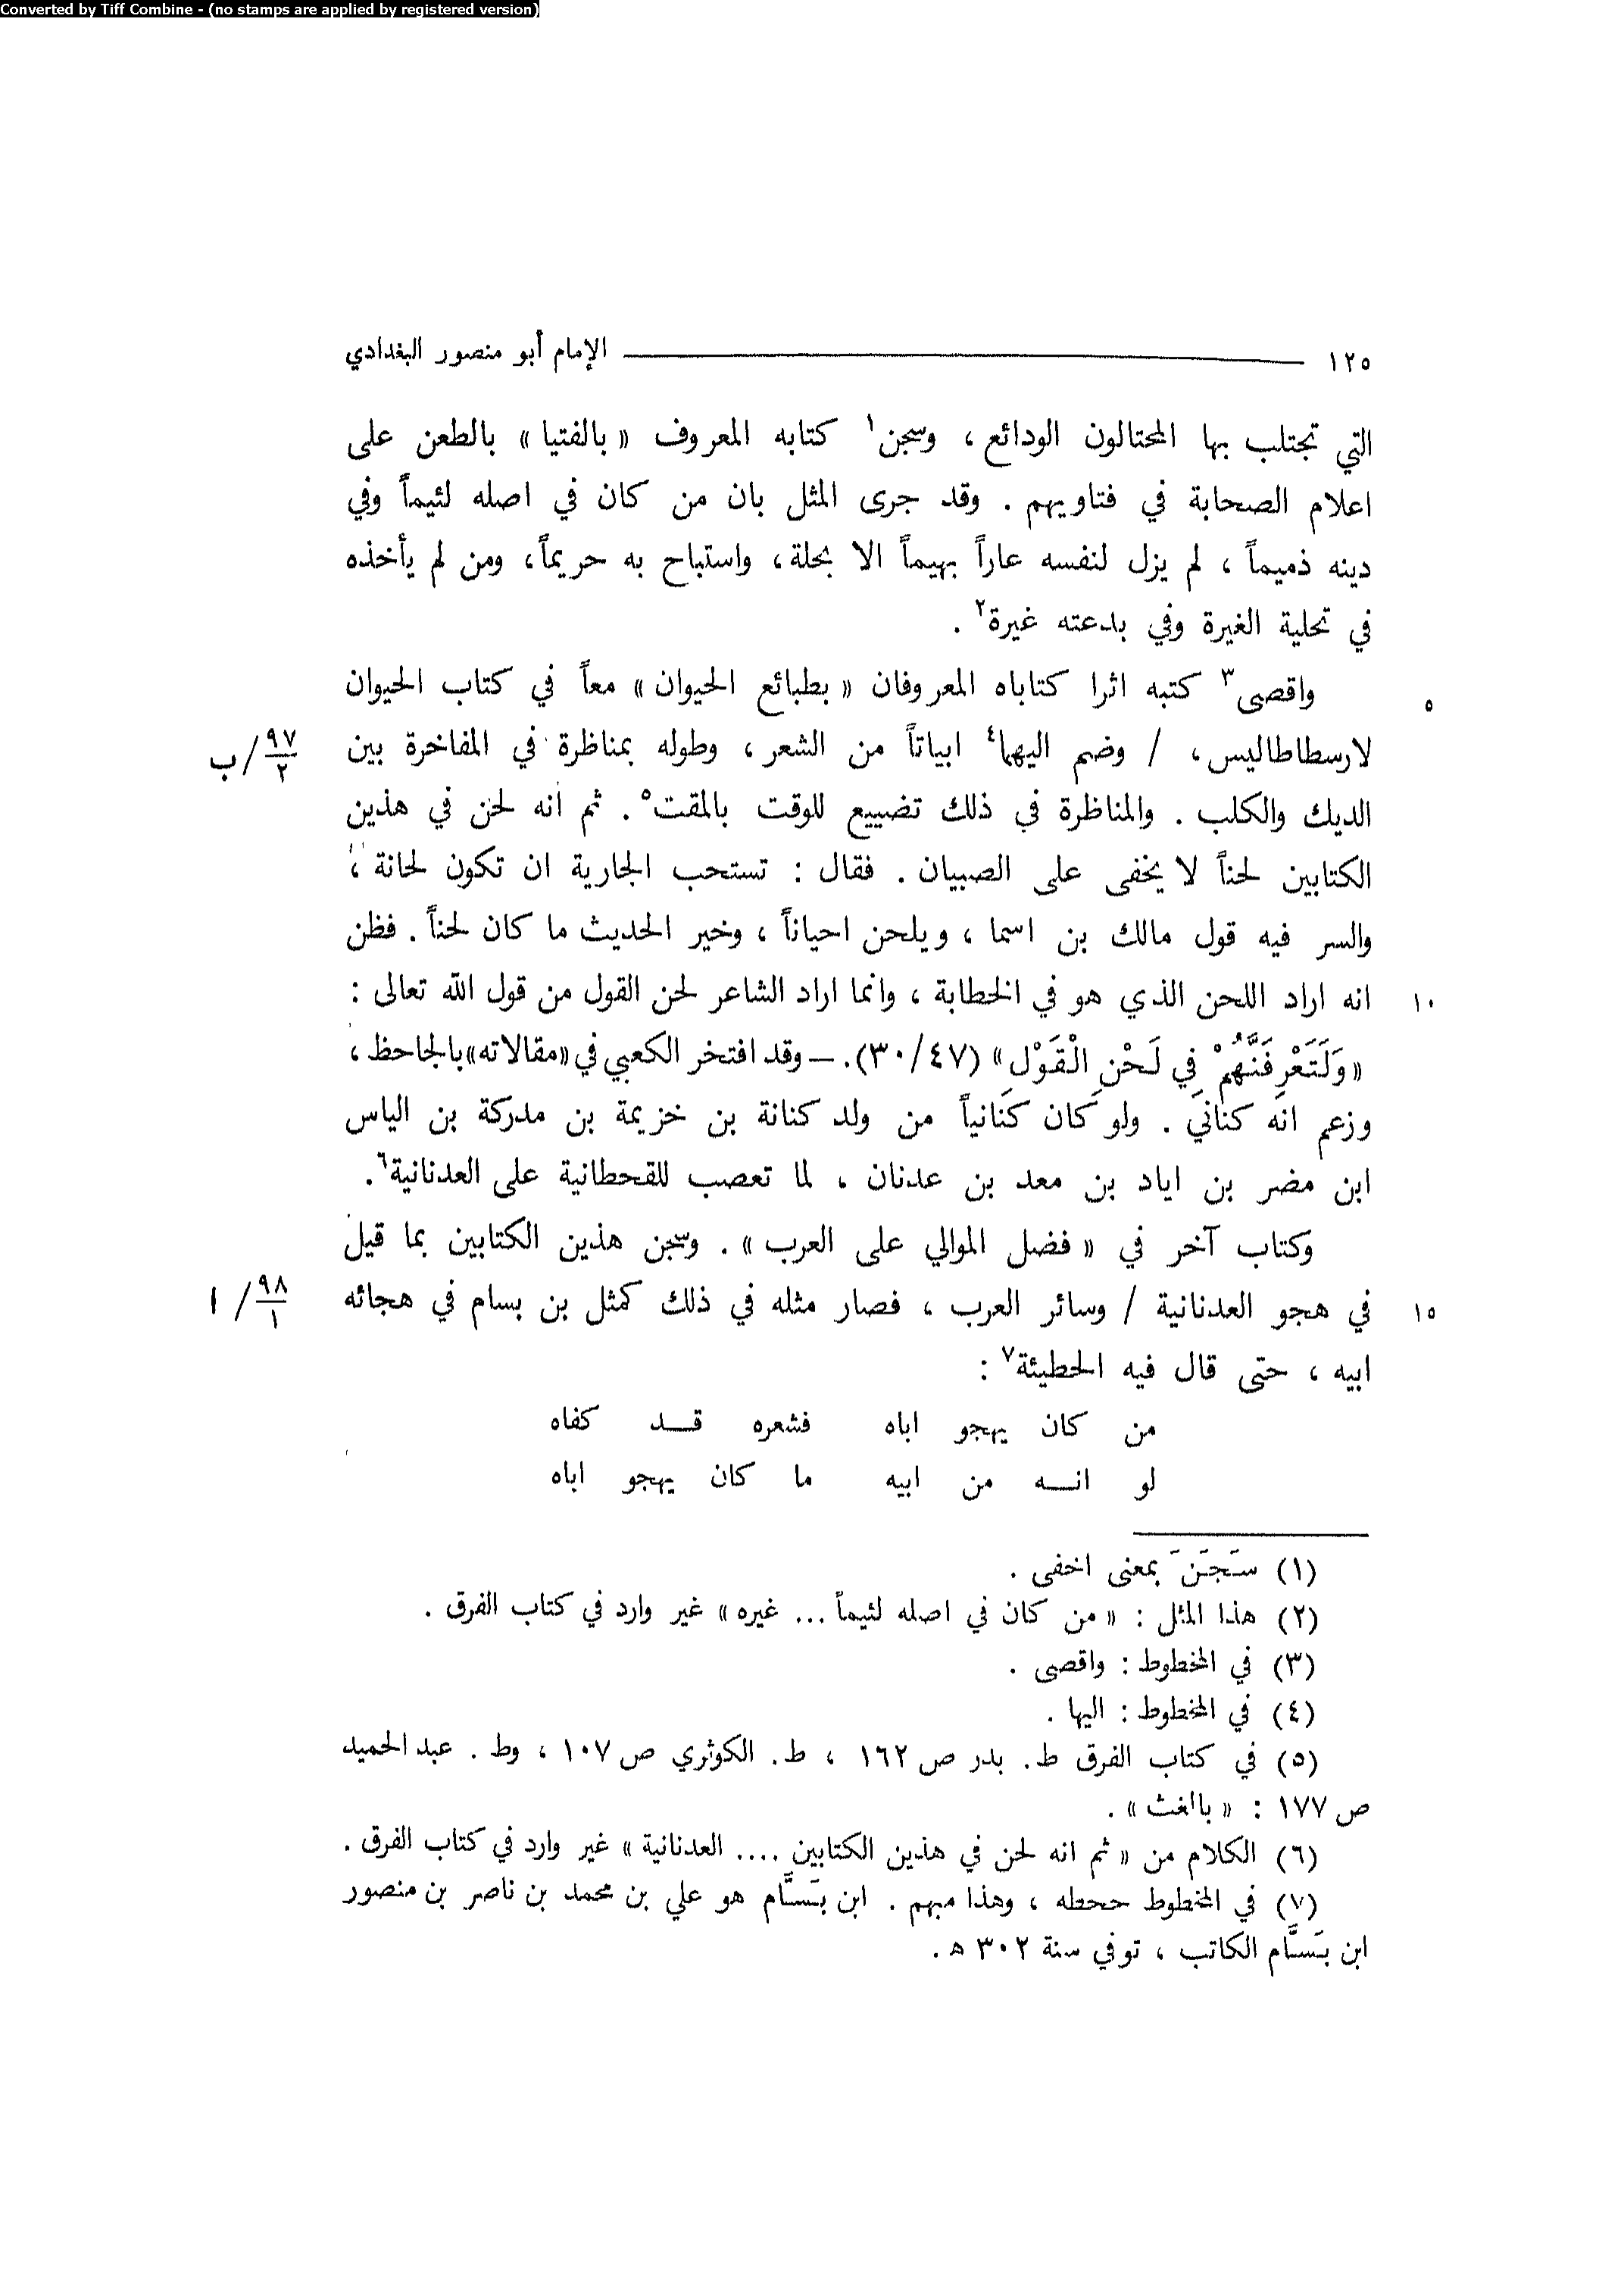 Converted by Tiff Combine - (no stamps are applied by registered version)
١٢٥ الإمام أبو منصور البغدادي
التي تجتلب بها المحتالون الودائع ، وسجن١ كتابه المعروف « بالفتيا » بالطعن على
اعلام الصحابة في فتاويهم . وقد جرى المثل بان من كان في اصله لئيماً وفي
دينه ذميماً ، لم يزل لنفسه عاراً بهيماً الا بحلة ، واستباح به حريماً ، ومن لم يأخذه
في تحلية الغيرة وفي بدعته غيرة٢ .
٥ واقصى٣ كتبه اثرا كتاباه المعروفان « بطبائع الحيوان » معاً في كتاب الحيوان
لارسطاطاليس ، / وضم اليهما٤ ابياتاً من الشعر ، وطوله بمناظرة في المفاخرة بين ٩٧/٢/ب
الديك والكلب . والمناظرة في ذلك تضييع للوقت بالمقت٥ . ثم انه لحن في هذين
الكتابين لحناً لا يخفى على الصبيان . فقال : تستحب الجارية ان تكون لحانة ،
والسر فيه قول مالك بن اسما ، ويلحن احياناً ، وخير الحديث ما كان لحناً . فظن
١٠ انه اراد اللحن الذي هو في الخطابة ، وانما اراد الشاعر لحن القول من قول الله تعالى :
« وَلَتَعْرِفَنَّهُمْ فِي لَحْنِ الْقَوْلِ » (٣٠/٤٧). — وقد افتخر الكعبي في «مقالاته» بالجاحظ ،
وزعم انه كناني . ولو كان كنانياً من ولد كنانة بن خزيمة بن مدركة بن الياس
ابن مضر بن اياد بن معد بن عدنان ، لما تعصب للقحطانية على العدنانية٦ .
وكتاب آخر في « فضل الموالي على العرب » . وسجن هذين الكتابين بما قيل
١٥ في هجو العدنانية / وسائر العرب ، فصار مثله في ذلك كمثل بن بسام في هجائه ٩٨/١/ ا
ابيه ، حتى قال فيه الحطيئة٧ :
من كان يهجو اباه فشعره قد كفاه
لو انه من ابيه ما كان يهجو اباه
(١) سَجَنَ بمعنى اخفى .
(٢) هذا المثل : « من كان في اصله لئيماً ... غيره » غير وارد في كتاب الفرق .
(٣) في المخطوط : واقصى .
(٤) في المخطوط : اليها .
(٥) في كتاب الفرق ط. بدر ص ١٦٢ ، ط. الكوثري ص ١٠٧ ، وط . عبد الحميد
ص ١٧٧ : « بالغث » .
(٦) الكلام من « ثم انه لحن في هذين الكتابين .... العدنانية » غير وارد في كتاب الفرق .
(٧) في المخطوط ححطه ، وهذا مبهم . ابن بَسَّام هو علي بن محمد بن ناصر بن منصور
ابن بَسَّام الكاتب ، توفي سنة ٣٠٢ ه .